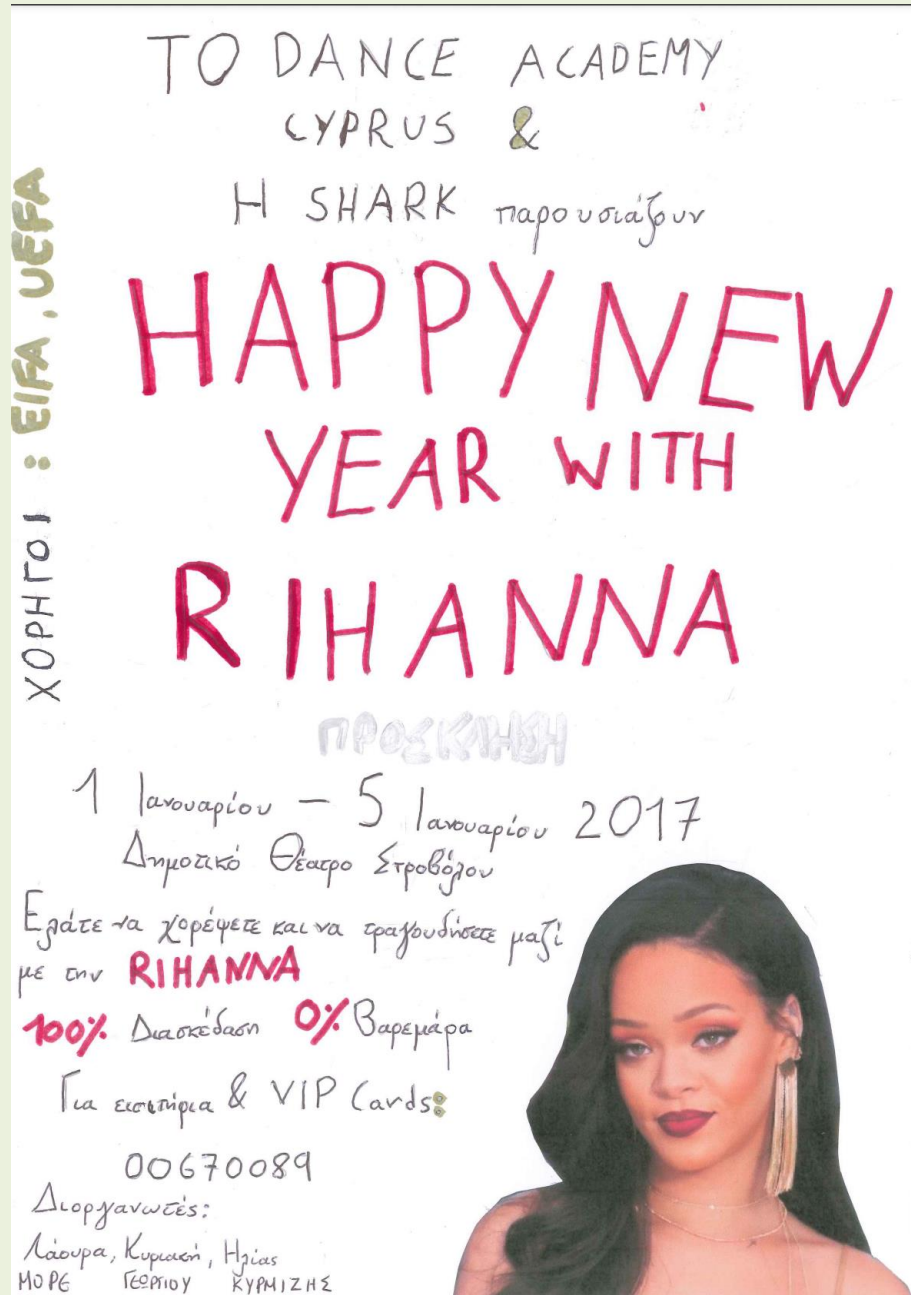 ΤΟ DANCE ACADEMY
CYPRUS &
Η SHARK παρουσιάζουν
HAPPY NEW
YEAR WITH
RIHANNA
ΧΟΡΗΓΟΙ : EIFA, UEFA
ΠΡΟΣΚΛΗΣΗ
1 Ιανουαρίου – 5 Ιανουαρίου 2017
Δημοτικό Θέατρο Στροβόλου
Ελάτε να χορέψετε και να τραγουδήσετε μαζί
με την RIHANNA
100% Διασκέδαση 0% Βαρεμάρα
Για εισιτήρια & VIP Cards:
00670089
Διοργανωτές:
Λάουρα, Κυριακή, Ηλίας
ΜΟΡΕ ΓΕΩΡΓΙΟΥ ΚΥΡΜΙΖΗΣ